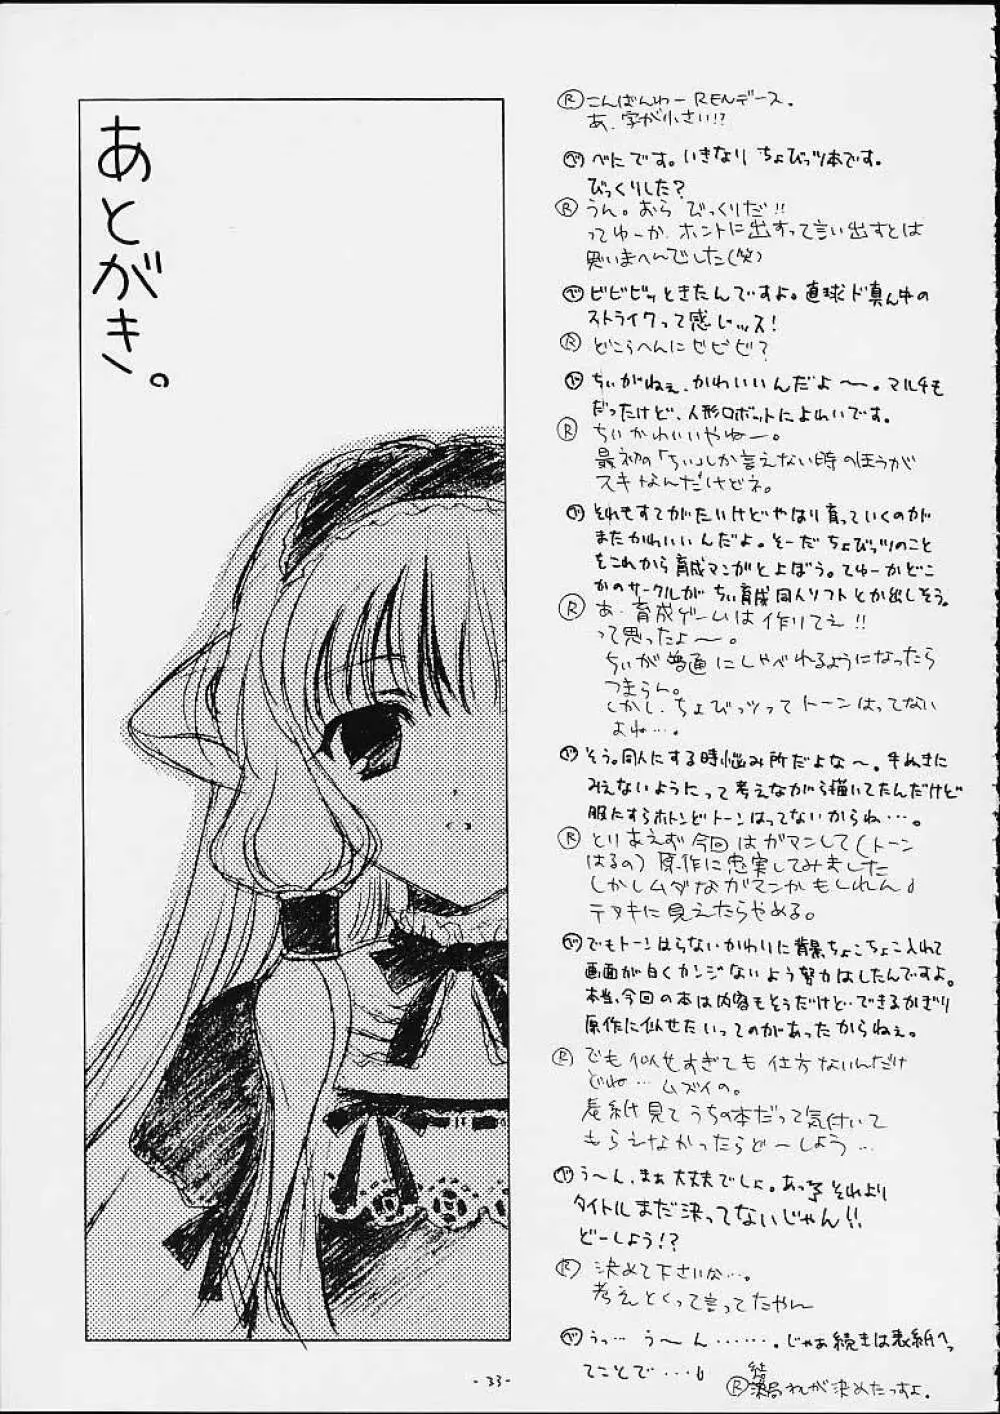 あとがき。
Ⓡ こんばんわー RENデース。
あ、字が小さい!?
べ べにです。いきなり ちょびっツ本です。
びっくりした?
Ⓡ うん。おら びっくりだ!!
ってゆーか、ホントに出すって言い出すとは
思いまへんでした(笑)
べ ビビビッときたんですよ。直球ド真ん中の
ストライクって感じッス!
Ⓡ どこらへんにビビビ?
べ ちぃがねぇ、かわいいんだよ〜〜。マルチも
だったけど、人形ロボットによわいです。
Ⓡ ちぃかわいいやねー。
最初の「ちぃ」しか言えない時のほうが
スキなんだけどネ。
べ それもすてがたいけどやはり育っていくのが
またかわいいんだよ。そーだ ちょびっツのこと
をこれから育成マンガとよぼう。てゆーかどこ
かのサークルが ちぃ育成同人ソフトとか出しそう。
Ⓡ あ、育成ゲームは作りてえ!!
って思ったよ〜〜。
ちぃが普通にしゃべれるようになったら
つまらん。
しかし、ちょびっツってトーンはってない
よね…。
べ そう。同人にする時悩み所だよな〜。手ぬきに
みえないようにって考えながら描いてたんだけど
服にすらホトンどトーンはってないからね…。
Ⓡ とりあえず今回はガマンして(トーン
はるの)原作に忠実してみました
しかしムダなガマンかもしれん♩
テヌキに見えたらやめる。
べ でもトーンはらないかわいに背景ちょこちょこ入れて
画面が白くカンジないよう努力はしたんですよ。
本当、今回の本は内容もそうだけど…できるかぎり
原作に似せたいってのがあったからねぇ。
Ⓡ でも似せすぎても仕方ないんだけ
どね… ムズイの。
表紙見てうちの本だって気付いて
もらえなかったらどーしよう…
べ う〜ん、まぁ大丈夫でしょ。あっそれより
タイトルまだ決ってないじゃん!!
どーしよう!?
Ⓡ 決めて下さいな…。
考えとくって言ってたやん
べ うっ… う〜ん……。じゃあ続きは表紙へっ
てことで…
Ⓡ 結局れんが決めたっすよ。
-33-